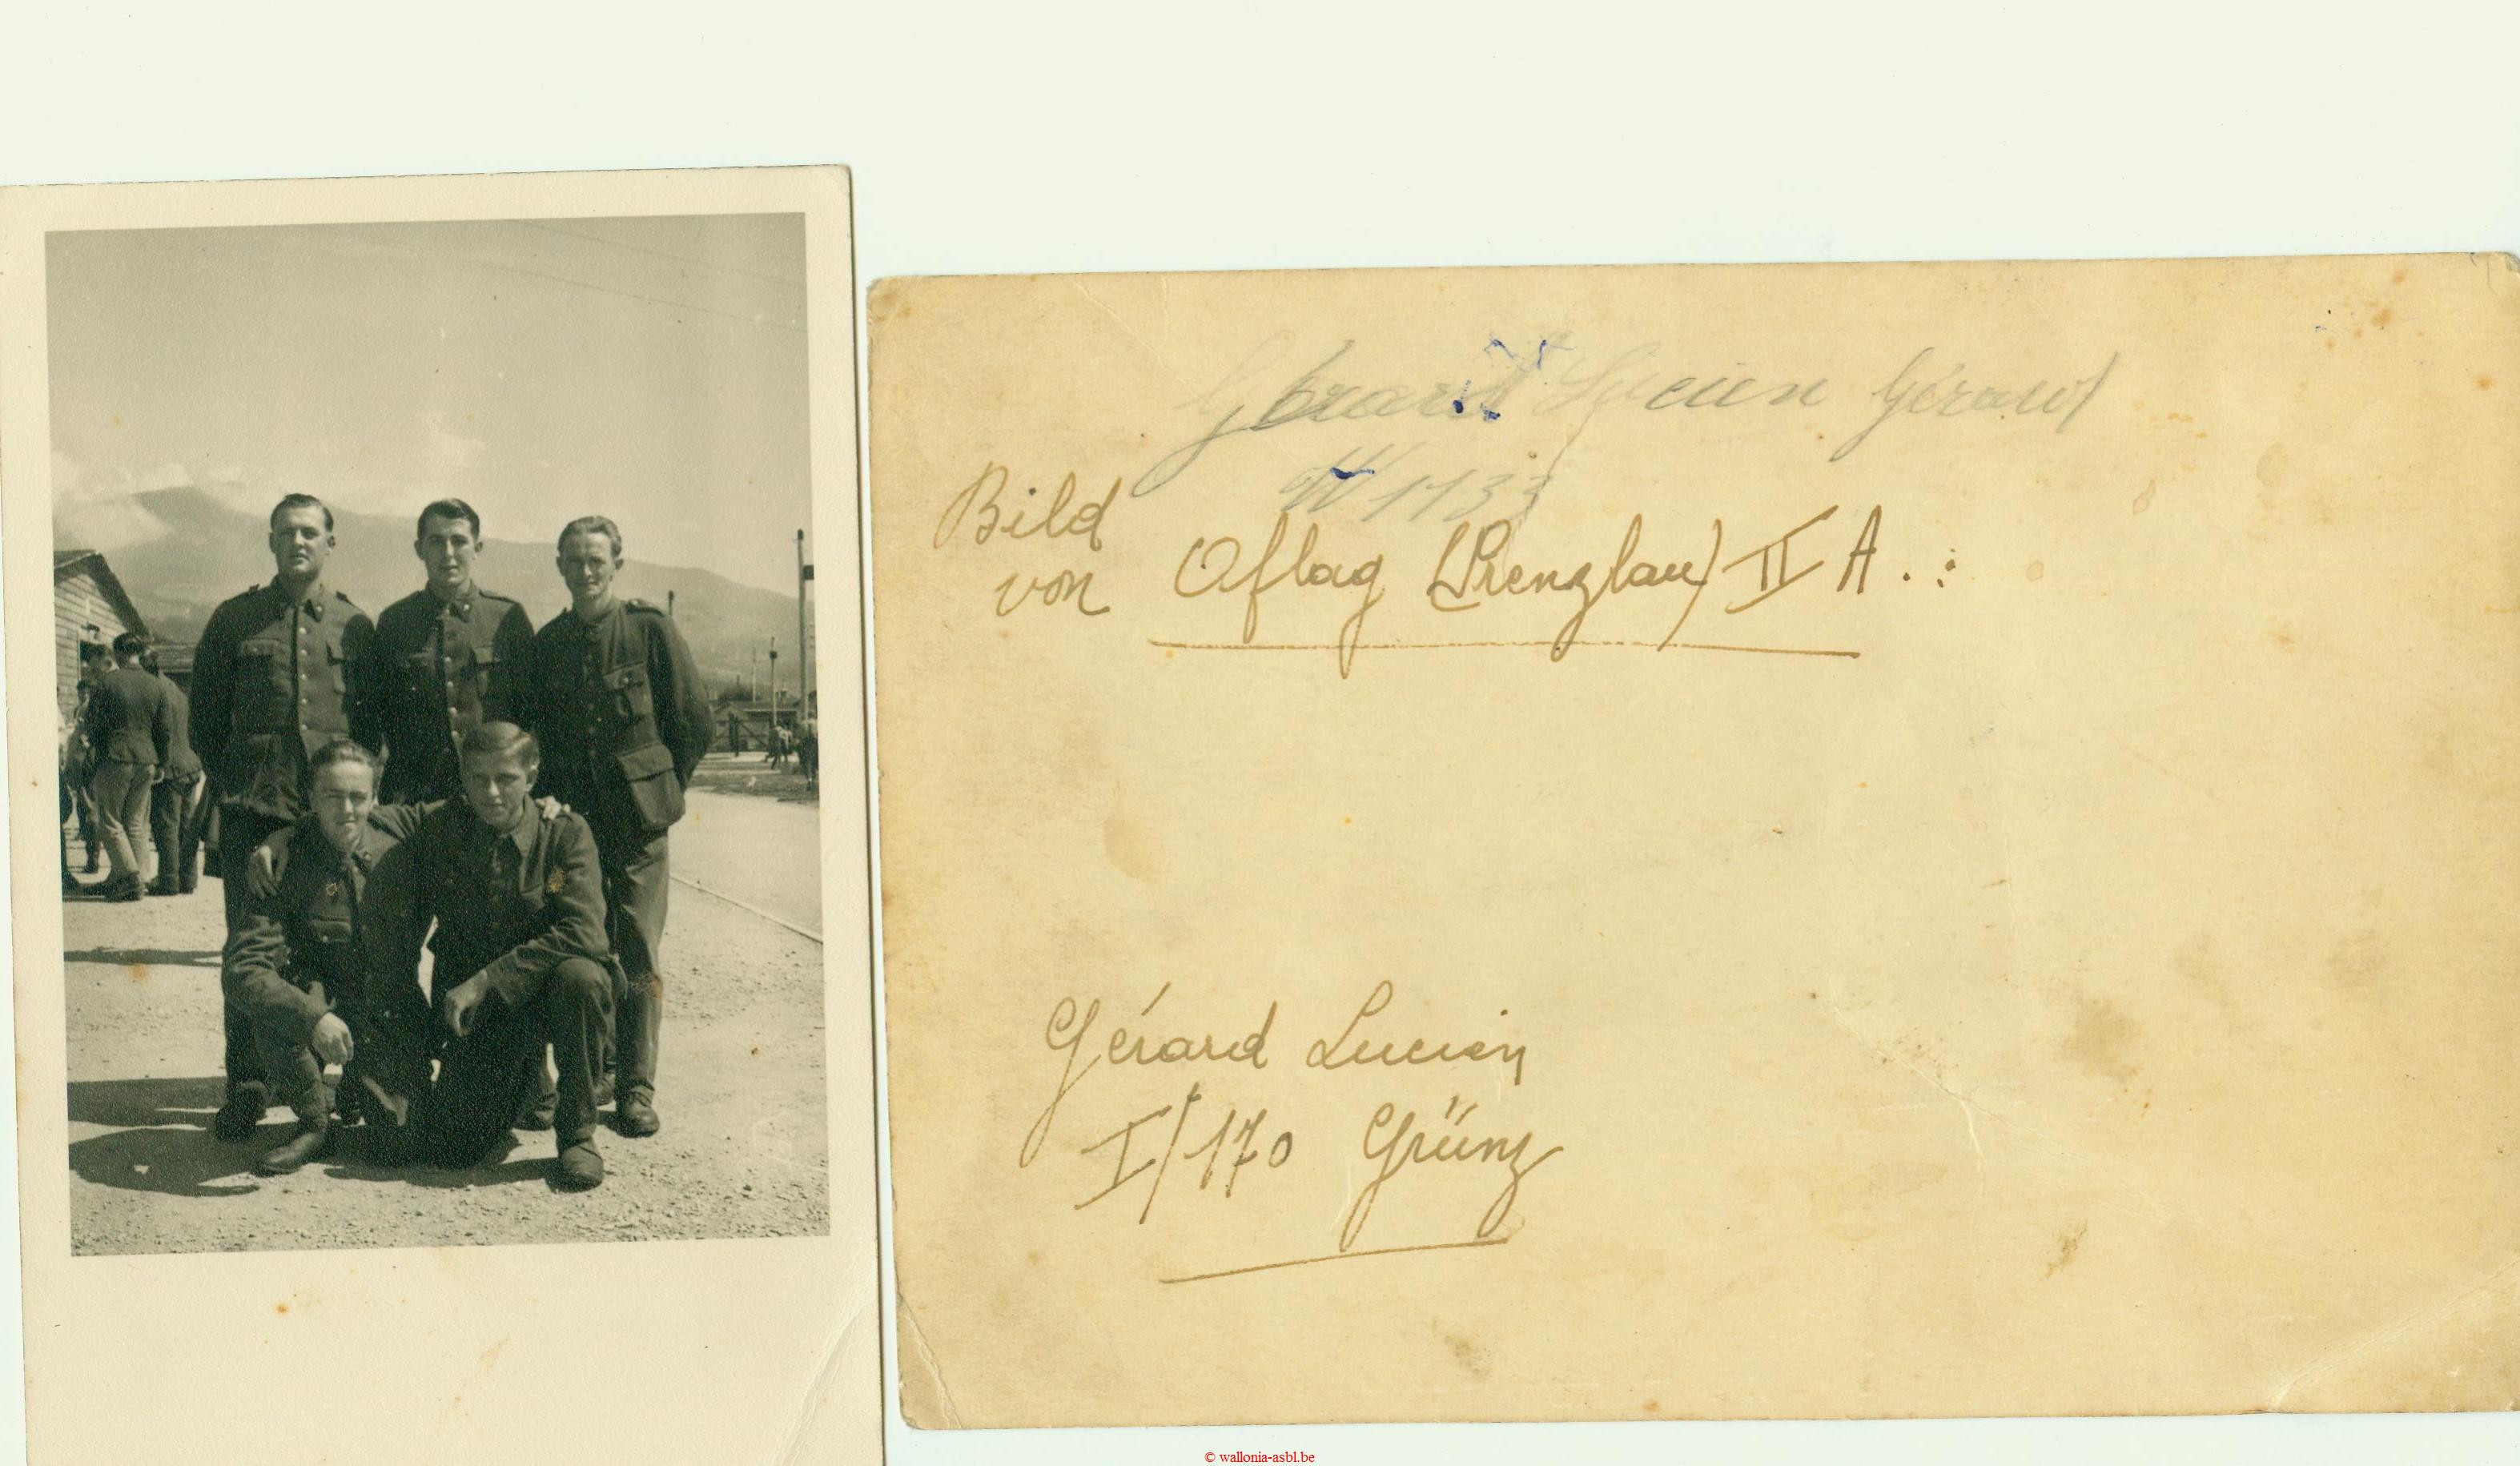 Gérard Lucien Gérard
1133
Bild
von Oflag (Prenzlau) II A.
Gérard Lucien
I/170 Grünz
© wallonia-asbl.be